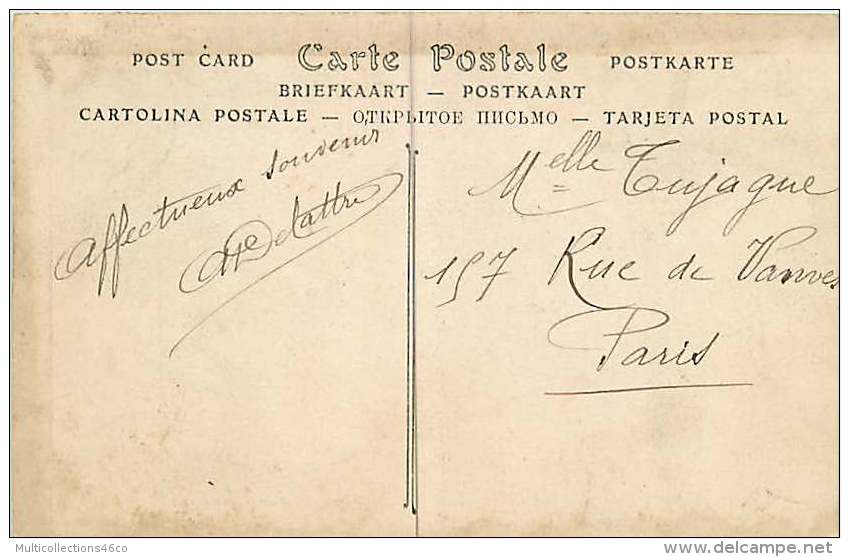 POST CARD Carte Postale POSTKARTE
BRIEFKAART — POSTKAART
CARTOLINA POSTALE — ОТКРЫТОЕ ПИСЬМО — TARJETA POSTAL
Affectueux souvenir
Delattre
Melle Tujague
157 Rue de Vanves
Paris
Multicollections46co
delcampe.net